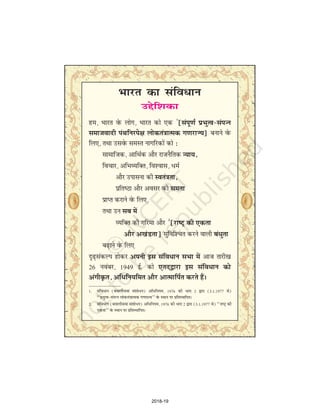 भारत का संविधान
उद्देशिका
हम, भारत के लोग, भारत को एक ¹[संपूर्ण प्रभुत्व-संपन्न
समाजवादी पंथनिरपेक्ष लोकतंत्रात्मक गणराज्य] बनाने के
लिए, तथा उसके समस्त नागरिकों को :
सामाजिक, आर्थिक और राजनैतिक न्याय,
विचार, अभिव्यक्ति, विश्वास, धर्म
और उपासना की स्वतंत्रता,
प्रतिष्ठा और अवसर की समता
प्राप्त कराने के लिए,
तथा उन सब में
व्यक्ति की गरिमा और ²[राष्ट्र की एकता
और अखंडता] सुनिश्चित करने वाली बंधुता
बढ़ाने के लिए
दृढ़संकल्प होकर अपनी इस संविधान सभा में आज तारीख
26 नवंबर, 1949 ई. को एतद्द्वारा इस संविधान को
अंगीकृत, अधिनियमित और आत्मार्पित करते हैं।
1. संविधान (बयालीसवां संशोधन) अधिनियम, 1976 की धारा 2 द्वारा (3.1.1977 से)
"प्रभुत्व-संपन्न लोकतंत्रात्मक गणराज्य" के स्थान पर प्रतिस्थापित।
2. संविधान (बयालीसवां संशोधन) अधिनियम, 1976 की धारा 2 द्वारा (3.1.1977 से) "राष्ट्र की
एकता" के स्थान पर प्रतिस्थापित।
2018-19